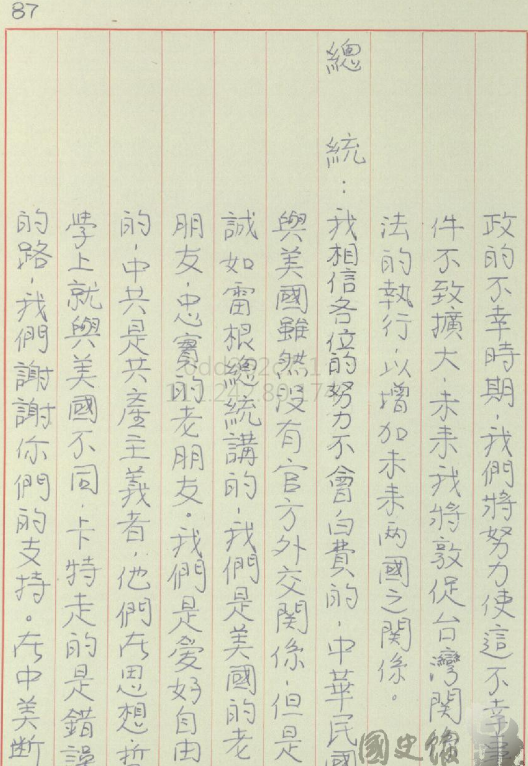 87
政的不幸時期，我們將努力使這不幸事
件不致擴大，未來我將敦促台灣關係
法的執行，以增加未來兩國之關係。
總統：我相信各位的努力不會白費的，中華民國
與美國雖然沒有官方外交關係，但是
誠如雷根總統講的，我們是美國的老
朋友，忠實的老朋友。我們是愛好自由
的，中共是共產主義者，他們在思想哲
學上就與美國不同，卡特走的是錯誤
的路，我們謝謝你們的支持。在中美斷
國史館